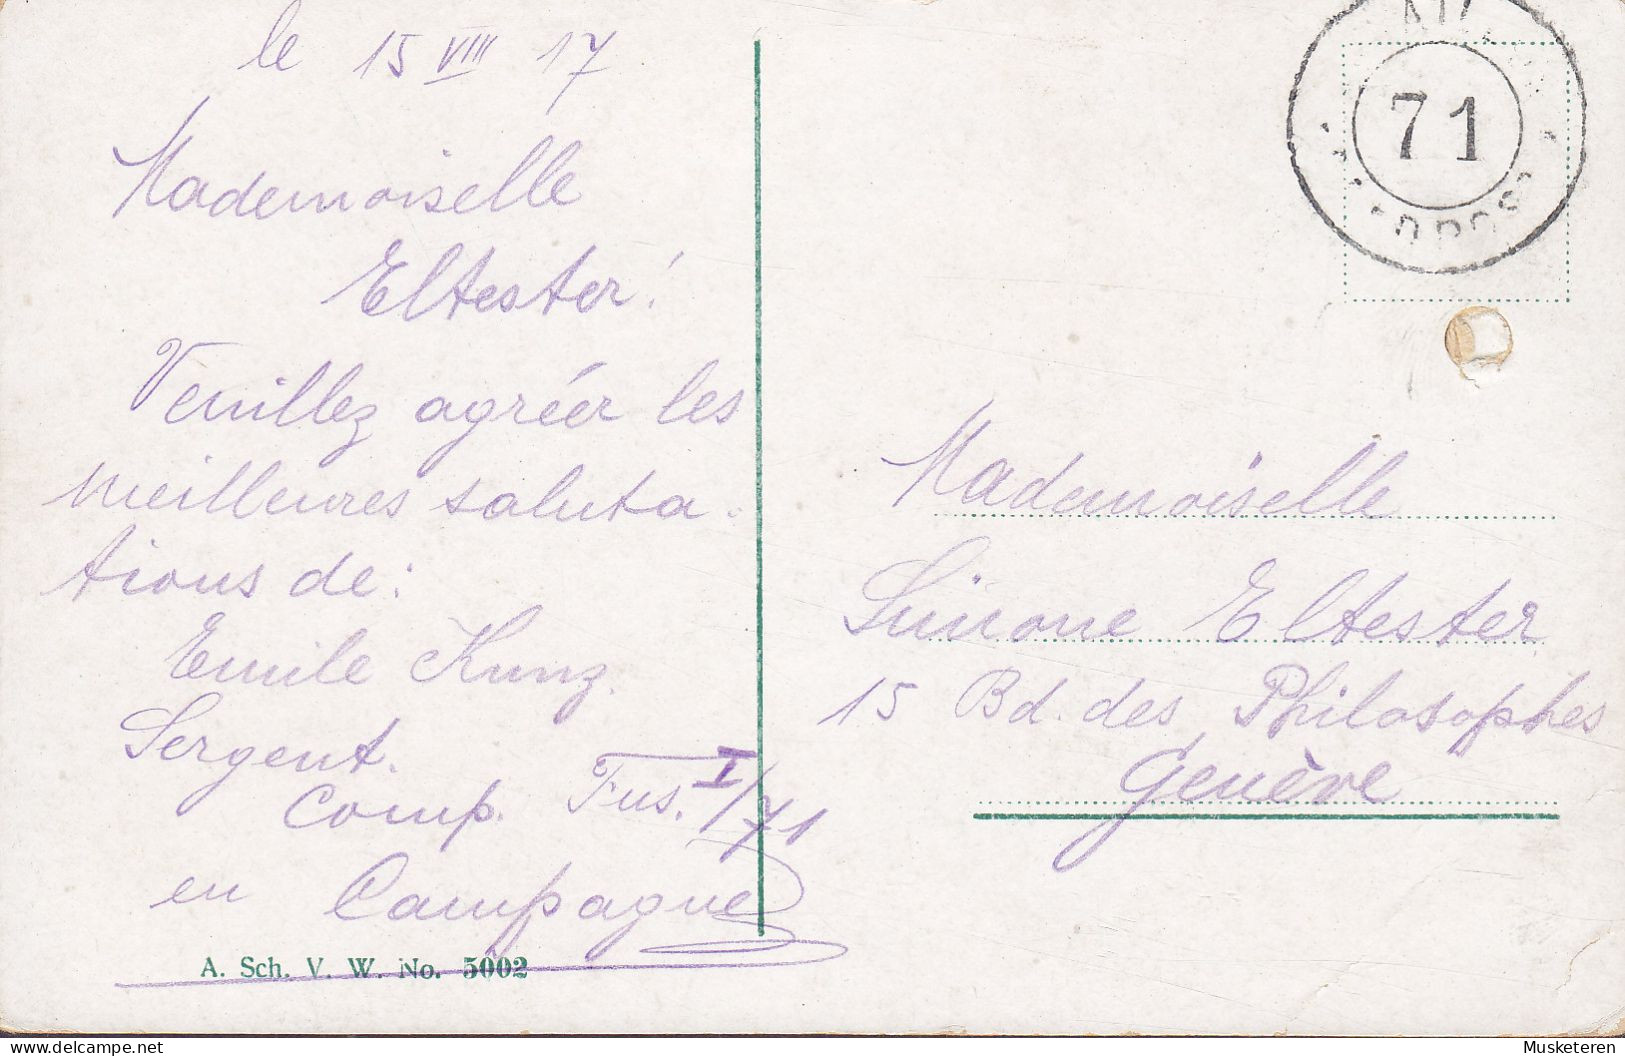 le 15 VIII 17
Mademoiselle
Eltester!
Veuillez agréer les
meilleures saluta-
tions de:
Emile Kunz.
Sergent.
Comp. Fus. I/71
en Campagne
A. Sch. V. W. No. 5002
71
Mademoiselle
Simone Eltester
15 Bd. des Philosophes
Genève
Musketeren
delcampe.net